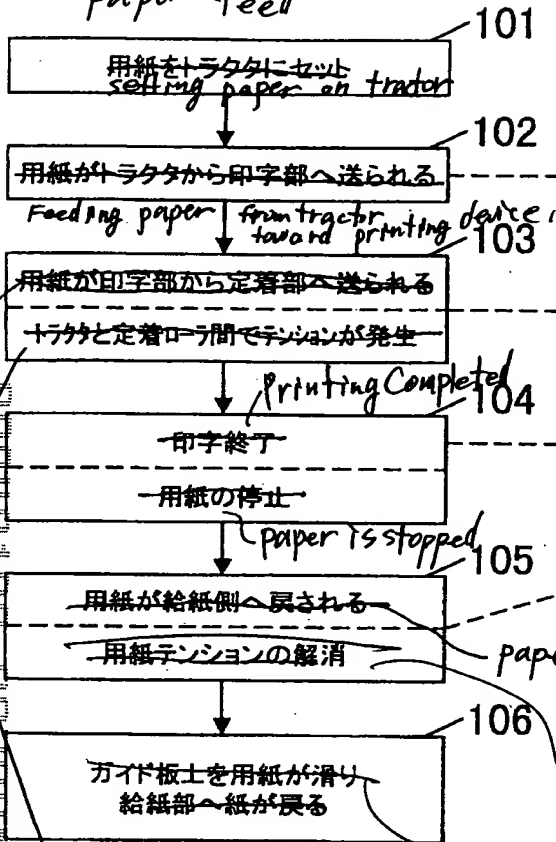 paper feed
101
用紙をトラクタにセット
setting paper on tractor
102
用紙がトラクタから印字部へ送られる
Feeding paper from tractor
toward printing device
103
用紙が印字部から定着部へ送られる
トラクタと定着ローラ間でテンションが発生
printing Completed
104
印字終了
用紙の停止
paper is stopped
105
用紙が給紙側へ戻される
用紙テンションの解消
pape
106
ガイド板上を用紙が滑り
給紙部へ紙が戻る